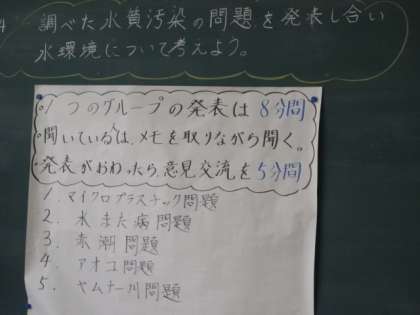 4 調べた水質汚染の問題を発表し合い
水環境について考えよう。
○1つのグループの発表は8分間
○聞いている人は、メモを取りながら聞く。
○発表がおわったら、意見交流を5分間
1. マイクロプラスチック問題
2. 水また病問題
3. 赤潮問題
4. アオコ問題
5. ヤムナー川問題